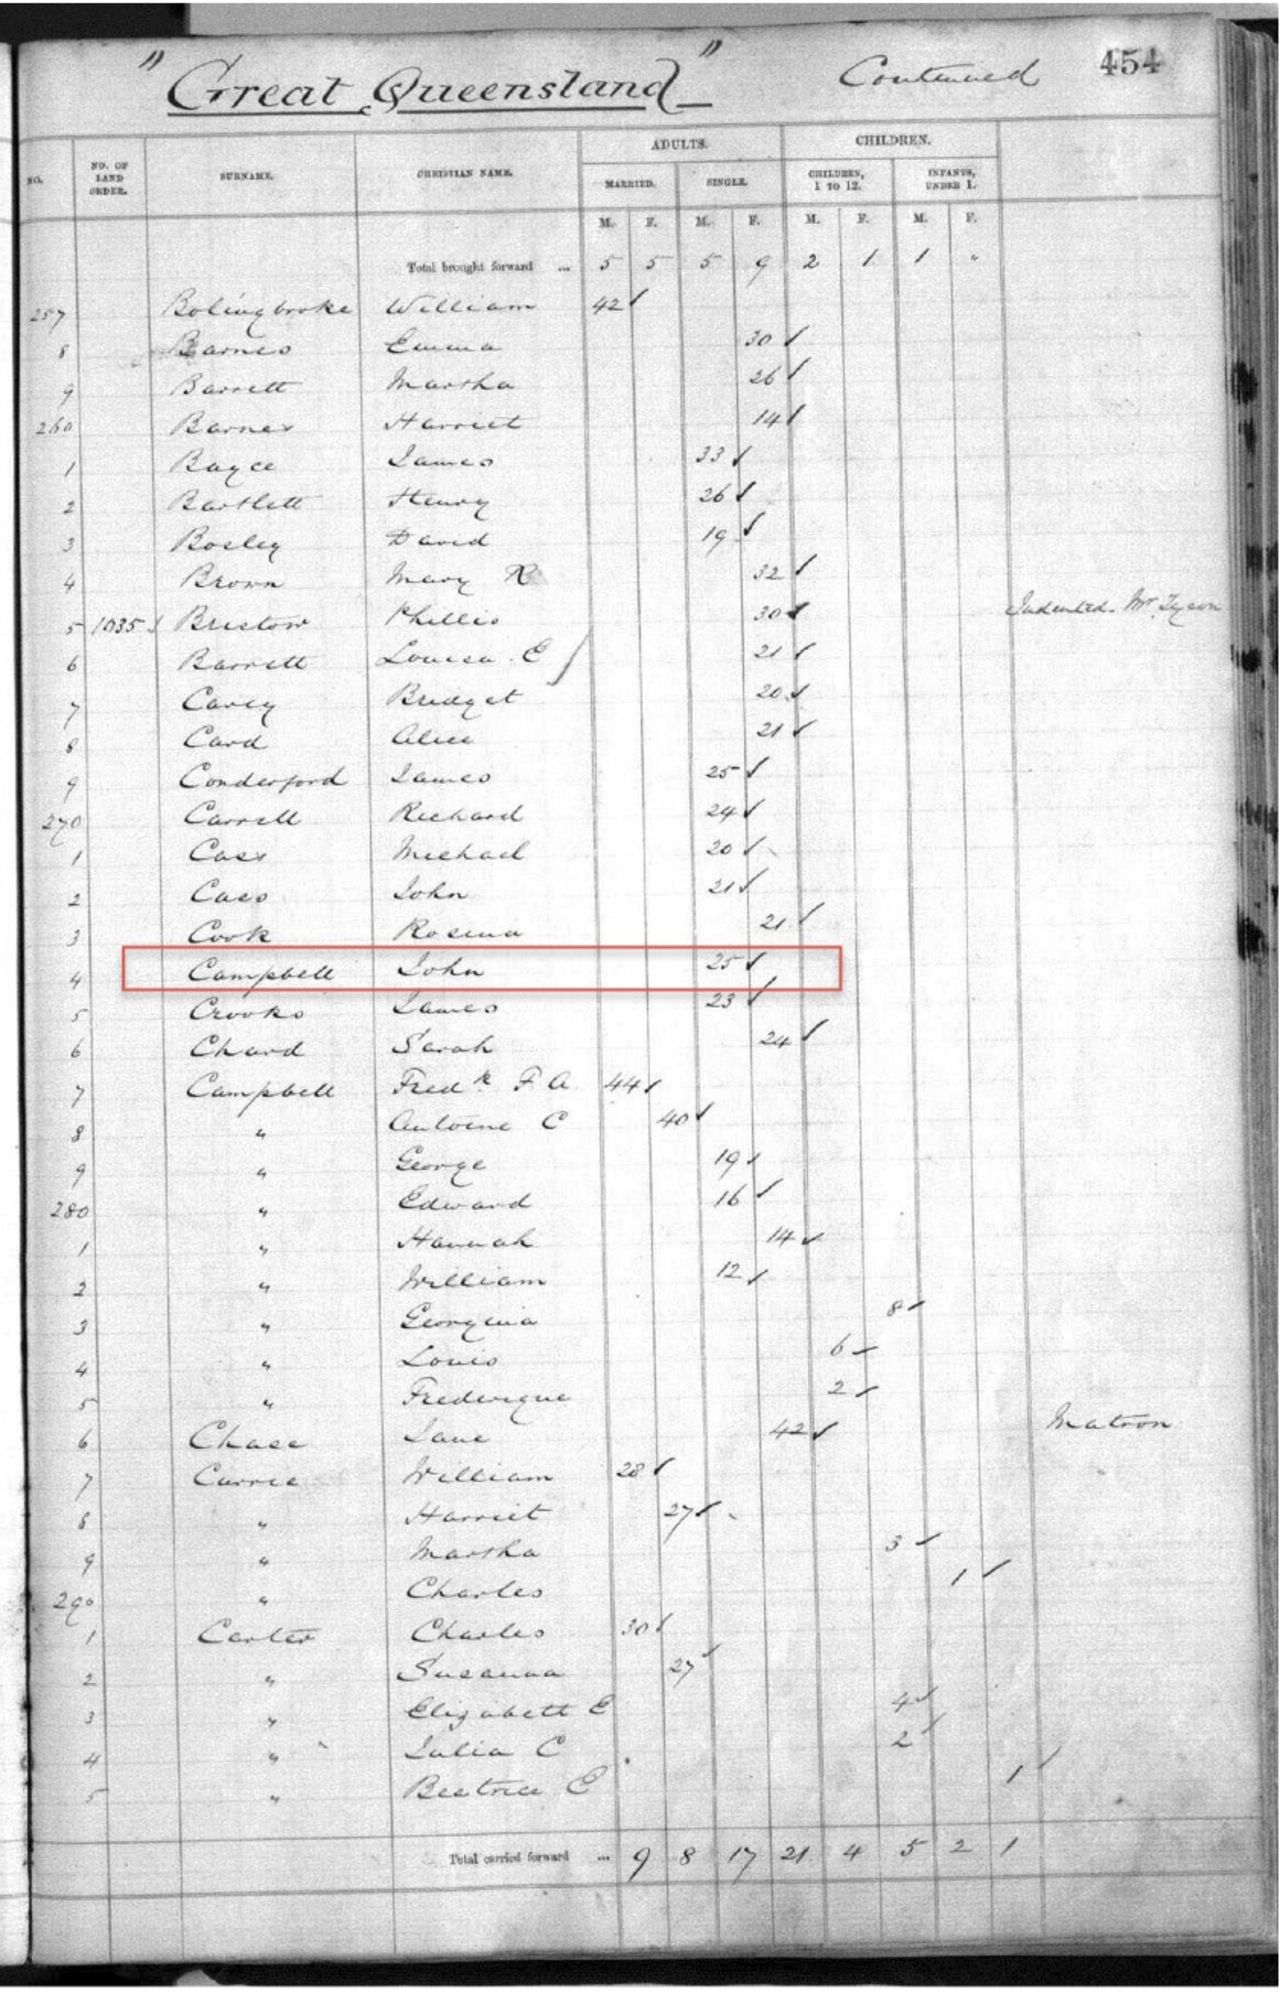 "Great Queensland" Continued 454
ADULTS. CHILDREN.
NO. NO. OF LAND ORDER. SURNAME. CHRISTIAN NAME. MARRIED. SINGLE. CHILDREN, 1 TO 12. INFANTS, UNDER 1.
M. F. M. F. M. F. M. F.
Total brought forward ... 5 5 5 9 2 1 1 "
257 Bolingbroke William 42
8 Barnes Emma 30
9 Barrett Martha 26
260 Barnes Harriet 14
1 Bayce James 33
2 Bartlett Henry 26
3 Bosley David 19
4 Brown Mary R 32
5 1035 Bristow Phillis 30 Indented Mr. Tyson
6 Barrett Louisa E 21
7 Carey Bridget 20
8 Card Alice 21
9 Conderford James 25
270 Carrell Richard 24
1 Cass Michael 20
2 Cass John 21
3 Cook Rosina 21
4 Campbell John 25
5 Crooks James 23
6 Chard Sarah 24
7 Campbell Fredk F A 44
8 " Antoine C 40
9 " George 19
280 " Edward 16
1 " Hannah 14
2 " William 12
3 " Georgina 8
4 " Louis 6
5 " Frederique 2
6 Chase Jane 42 Matron
7 Currie William 28
8 " Harriet 27
9 " Martha 3
290 " Charles 1
1 Carter Charles 30
2 " Susanna 27
3 " Elizabeth E 4
4 " Julia C 2
5 " Beatrice E 1
Total carried forward ... 9 8 17 21 4 5 2 1